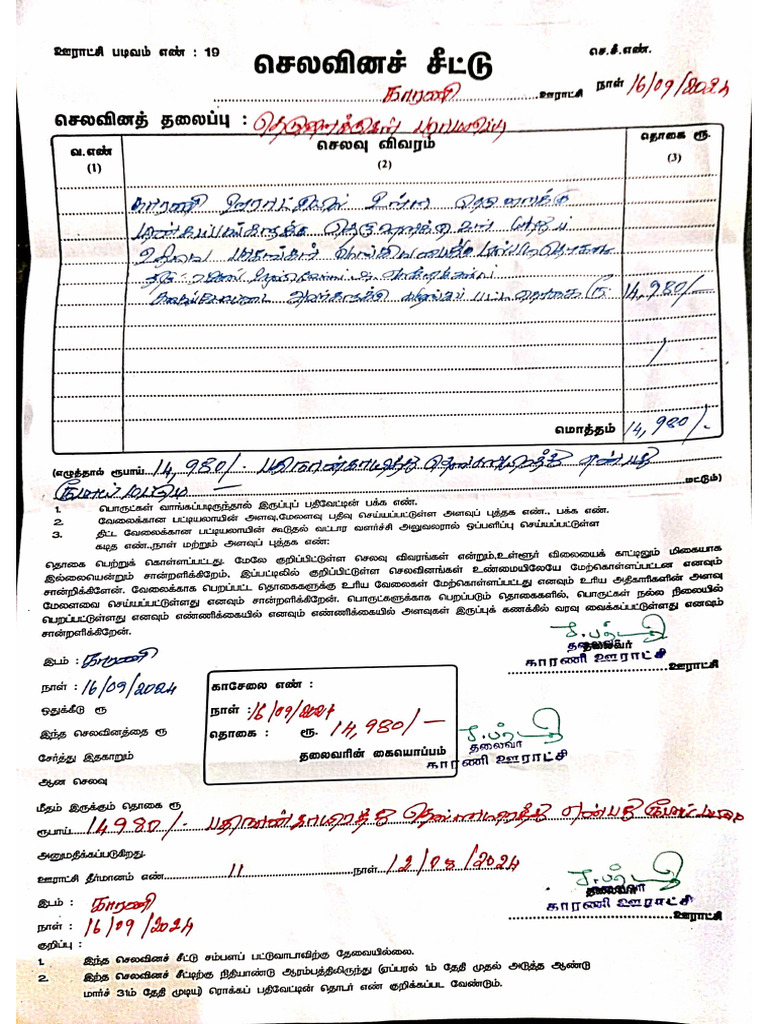 ஊராட்சி படிவம் எண் : 19
செ.சீ.எண்.
செலவினச் சீட்டு
காரணி ஊராட்சி நாள் 16/09/2024
செலவினத் தலைப்பு : தெருவிளக்குகள் பராமரிப்பு
வ.எண் செலவு விவரம் தொகை ரூ.
(1) (2) (3)
காரணி ஊராட்சியில் உள்ள
தெருவிளக்குகள்
உதிரி
தொகை ரூ 14,980/-
மொத்தம் 14,980/-
(எழுத்தால் ரூபாய் 14,980/- பதினான்காயிரத்து தொள்ளாயிரத்து எண்பது
ரூபாய் மட்டும் மட்டும்)
1. பொருட்கள் வாங்கப்படிருந்தால் இருப்புப் பதிவேட்டின் பக்க எண்.
2. வேலைக்கான பட்டியலாயின் அளவு.மேலளவு பதிவு செய்யப்பட்டுள்ள அளவுப் புத்தக எண்., பக்க எண்.
3. திட்ட வேலைக்கான பட்டியலாயின் கூடுதல் வட்டார வளர்ச்சி அலுவலரால் ஒப்பளிப்பு செய்யப்பட்டுள்ள
கடித எண்.,நாள் மற்றும் அளவுப் புத்தக எண்:
தொகை பெற்றுக் கொள்ளப்பட்டது. மேலே குறிப்பிட்டுள்ள செலவு விவரங்கள் என்றும்,உள்ளூர் விலையைக் காட்டிலும் மிகையாக
இல்லையென்றும் சான்றளிக்கிறேம். இப்பட்டிலில் குறிப்பிட்டுள்ள செலவினங்கள் உண்மையிலேயே மேற்கொள்ளப்பட்டன எனவும்
சான்றிக்ளேன். வேலைக்காக பெறப்பட்ட தொகைகளுக்கு உரிய வேலைகள் மேற்கொள்ளப்பட்டது எனவும் உரிய அதிகாரிகளின் அளவு
மேலளவை செய்யப்பட்டுள்ளது எனவும் சான்றளிக்கிறேன். பொருட்களுக்காக பெறப்படும் தொகைகளில், பொருட்கள் நல்ல நிலையில்
பெறப்பட்டுள்ளது எனவும் எண்ணிக்கையில் எனவும் எண்ணிக்கையில் அளவுகள் இருப்புக் கணக்கில் வரவு வைக்கப்பட்டுள்ளது எனவும்
சான்றளிக்கிறேன்.
தலைவர்
காரணி ஊராட்சி
ஊராட்சி
இடம் : காரணி
நாள் : 16/09/2024
ஒதுக்கீடு ரூ
இந்த செலவினத்தை ரூ
சேர்த்து இதகாறும்
ஆன செலவு
காசேலை எண் :
நாள் : 16/09/2024
தொகை : ரூ. 14,980/-
தலைவரின் கையொப்பம்
தலைவர்
காரணி ஊராட்சி
மீதம் இருக்கும் தொகை ரூ
ரூபாய் 14980/- பதினான்காயிரத்து தொள்ளாயிரத்து எண்பது ரூபாய் மட்டும்
அனுமதிக்கப்படுகிறது.
ஊராட்சி தீர்மானம் எண். 11 நாள் 12/08/2024
தலைவர்
காரணி ஊராட்சி
ஊராட்சி
இடம் : காரணி
நாள் : 16/09/2024
குறிப்பு :
1. இந்த செலவினச் சீட்டு சம்பளப் பட்டுவாடாவிற்கு தேவையில்லை.
2. இந்த செலவினச் சீட்டிற்கு நிதியாண்டு ஆரம்பத்திலிருந்து (ஏப்பரல் 1ம் தேதி முதல் அடுத்த ஆண்டு
மார்ச் 31ம் தேதி முடிய) ரொக்கப் பதிவேட்டின் தொடர் எண் குறிக்கப்பட வேண்டும்.